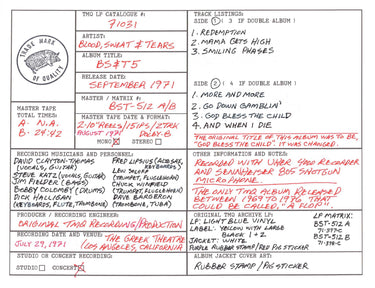 TMQ LP CATALOGUE #:
71031
TRADE MARK
OF QUALITY
ARTIST:
BLOOD, SWEAT & TEARS
ALBUM TITLE:
BS&T5
RELEASE DATE:
SEPTEMBER 1971
MASTER / MATRIX #:
BST-512 A/B
MASTER TAPE
TOTAL TIMES:
A- N.A.
B- 24:42
MASTER TAPE DATE & FORMAT:
2/10" REELS/15IPS/2TRK
AUGUST 1971 DOLBY-B
MONO STEREO
TRACK LISTINGS:
SIDE 1 ( 3 IF DOUBLE ALBUM )
1. REDEMPTION
2. MAMA GETS HIGH
3. SMILING PHASES
SIDE 2 ( 4 IF DOUBLE ALBUM )
1. MORE AND MORE
2. GO DOWN GAMBLIN'
3. GOD BLESS THE CHILD
4. AND WHEN I DIE
THE ORIGINAL TITLE OF THIS ALBUM WAS TO BE,
"GOD BLESS THE CHILD". IT WAS CHANGED.
RECORDING MUSICIANS AND PERSONNEL:
DAVID CLAYTON-THOMAS
(VOCALS, GUITAR)
STEVE KATZ (VOCALS, GUITAR)
JIM FIELDER (BASS)
BOBBY COLOMBY (DRUMS)
DICK HALLIGAN
(KEYBOARDS, FLUTE, TROMBONE)
FRED LIPSIUS (ALTO SAX,
KEYBOARDS)
LEW SOLOFF
(TRUMPET, FLUGELHORN)
CHUCK WINFIELD
(TRUMPET, FLUGELHORN)
DAVE BARGERON
(TROMBONE, TUBA)
OTHER INFORMATION AND NOTES:
RECORDED WITH UHER 4400 RECORDER
AND SENNHEISER 805 SHOTGUN
MICROPHONE.
THE ONLY TMQ ALBUM RELEASED
BETWEEN 1969 TO 1976 THAT
COULD BE CALLED, "A FLOP".
PRODUCER / RECORDING ENGINEER:
ORIGINAL TMQ RECORDING/PRODUCTION
RECORDING DATE AND VENUE:
JULY 29, 1971
THE GREEK THEATRE
(LOS ANGELES, CALIFORNIA)
STUDIO OR CONCERT RECORDING:
STUDIO CONCERT
ORIGINAL TMQ ARCHIVE LP:
LP: LIGHT BLUE VINYL
LABEL: YELLOW WITH LARGE
BLACK 1 + 2
JACKET: WHITE
PURPLE RUBBER STAMP/RED PIG STICKER
LP MATRIX:
BST-512 A
BST-512 B
ALBUM JACKET COVER ART:
RUBBER STAMP / PIG STICKER